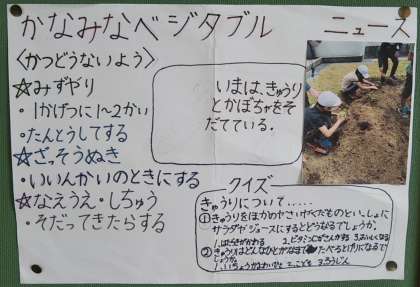 かなみなベジタブル ニュース
〈かつどうないよう〉
☆みずやり
・1かげつに1〜2かい
・たんとうしてする
☆ざっそうぬき
・いいんかいのときにする
☆なえうえ・しちゅう
・そだってきたらする
いまは、きゅうり
とかぼちゃをそ
だてている.
クイズ
きゅうりについて.....
①きゅうりをほかのやさいやくだものといっしょに
サラダやジュースにするとどうなるでしょうか。
1.はたらきがかわる 2.ビタミンCがさんかする 3.おいしくなる
②きゅうりはどんなひとがなまでたべるとげりになるで
しょうか。
2.こども 3.ろうじん